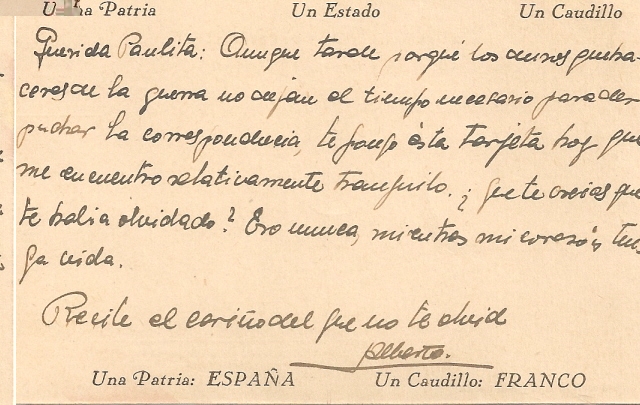 Una Patria Un Estado Un Caudillo
Querida Paulita: Aunque tarde porqué los duros queha-
ceres de la guerra no dejan el tiempo necesario para des-
pachar la correspondencia, te pongo ésta tarjeta hoy que
me encuentro relativamente tranquilo. ¿Que te creias que
te habia olvidado? Eso nunca, mientras mi corazón ten-
ga vida.
Recibe el cariño del que no te olvid
Alberto.
Una Patria: ESPAÑA Un Caudillo: FRANCO